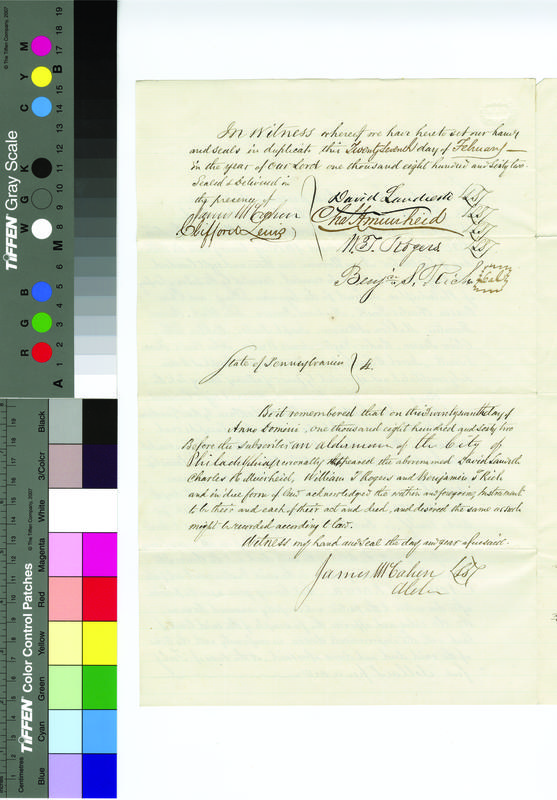 In Witness whereof we have hereto set our hands
and seals in duplicate this Twenty seventh day of February
in the year of Our Lord one thousand eight hundred and sixty two
Sealed & Delivered in
the presence of
James McCahen
Clifford Lewis
David Landreth LS
Chas A muirheid LS
W. T. Rogers LS
Benj. S. Rich Seal
State of Pennsylvania
Be it remembered that on this twenty seventh day of
Anno Domini, one thousand eight hundred and sixty two
Before the subscriber an alderman of the City of
Philadelphia personally appeared the above named David Landreth
Charles A. Muirheid, William T Rogers and Benjamin S Rich
and in due form of law acknowledged the within and foregoing Instrument
to be their and each of their act and deed, and desired the same as such
might be recorded according to law.
Witness my hand and seal the day and year aforesaid.
James McCahen LS
Alder
TIFFEN Gray Scale
© The Tiffen Company, 2007
R G B W G K C Y M
A 1 2 3 4 5 6 M 8 9 10 11 12 13 14 15 B 17 18 19
TIFFEN Color Control Patches
© The Tiffen Company, 2007
Blue Cyan Green Yellow Red Magenta White 3/Color Black
Centimetres
Inches